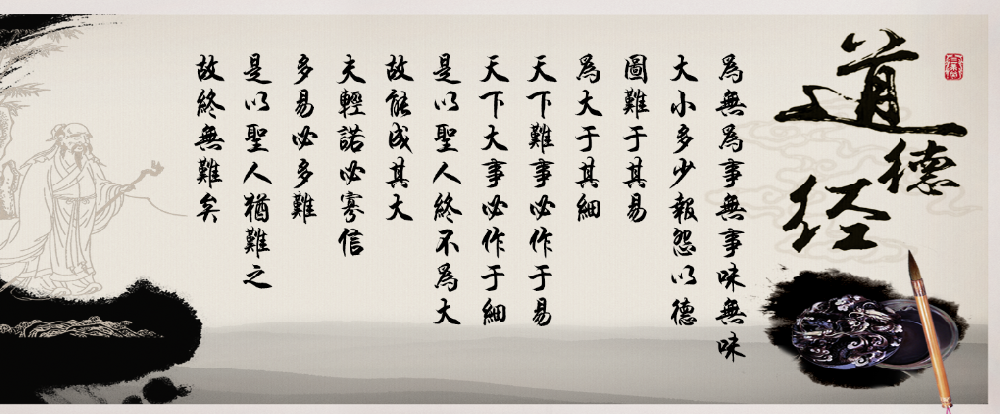 道德经
為無為事無事味無味
大小多少報怨以德
圖難于其易
為大于其細
天下難事必作于易
天下大事必作于細
是以聖人終不為大
故能成其大
夫輕諾必寡信
多易必多難
是以聖人猶難之
故終無難矣